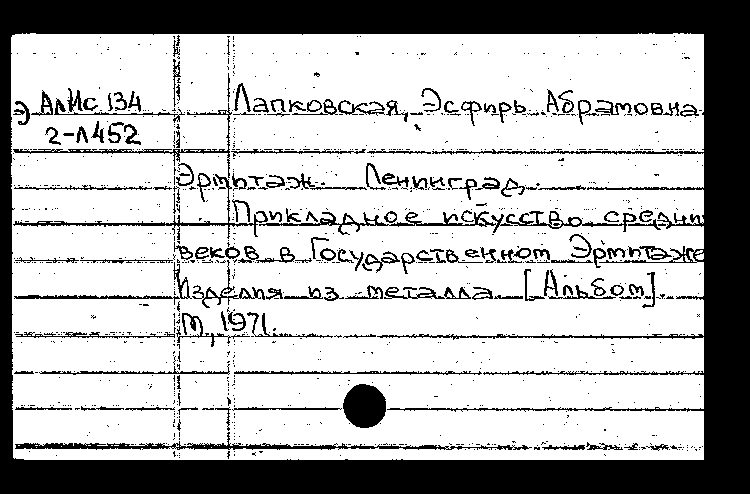 э) АлИс 134 Лапковская, Эсфирь Абрамовна
2-Л452
Эрмитаж. Ленинград.
Прикладное искусство средни
веков в Государственном Эрмитаже
Изделия из металла. [Альбом].
М., 1971.